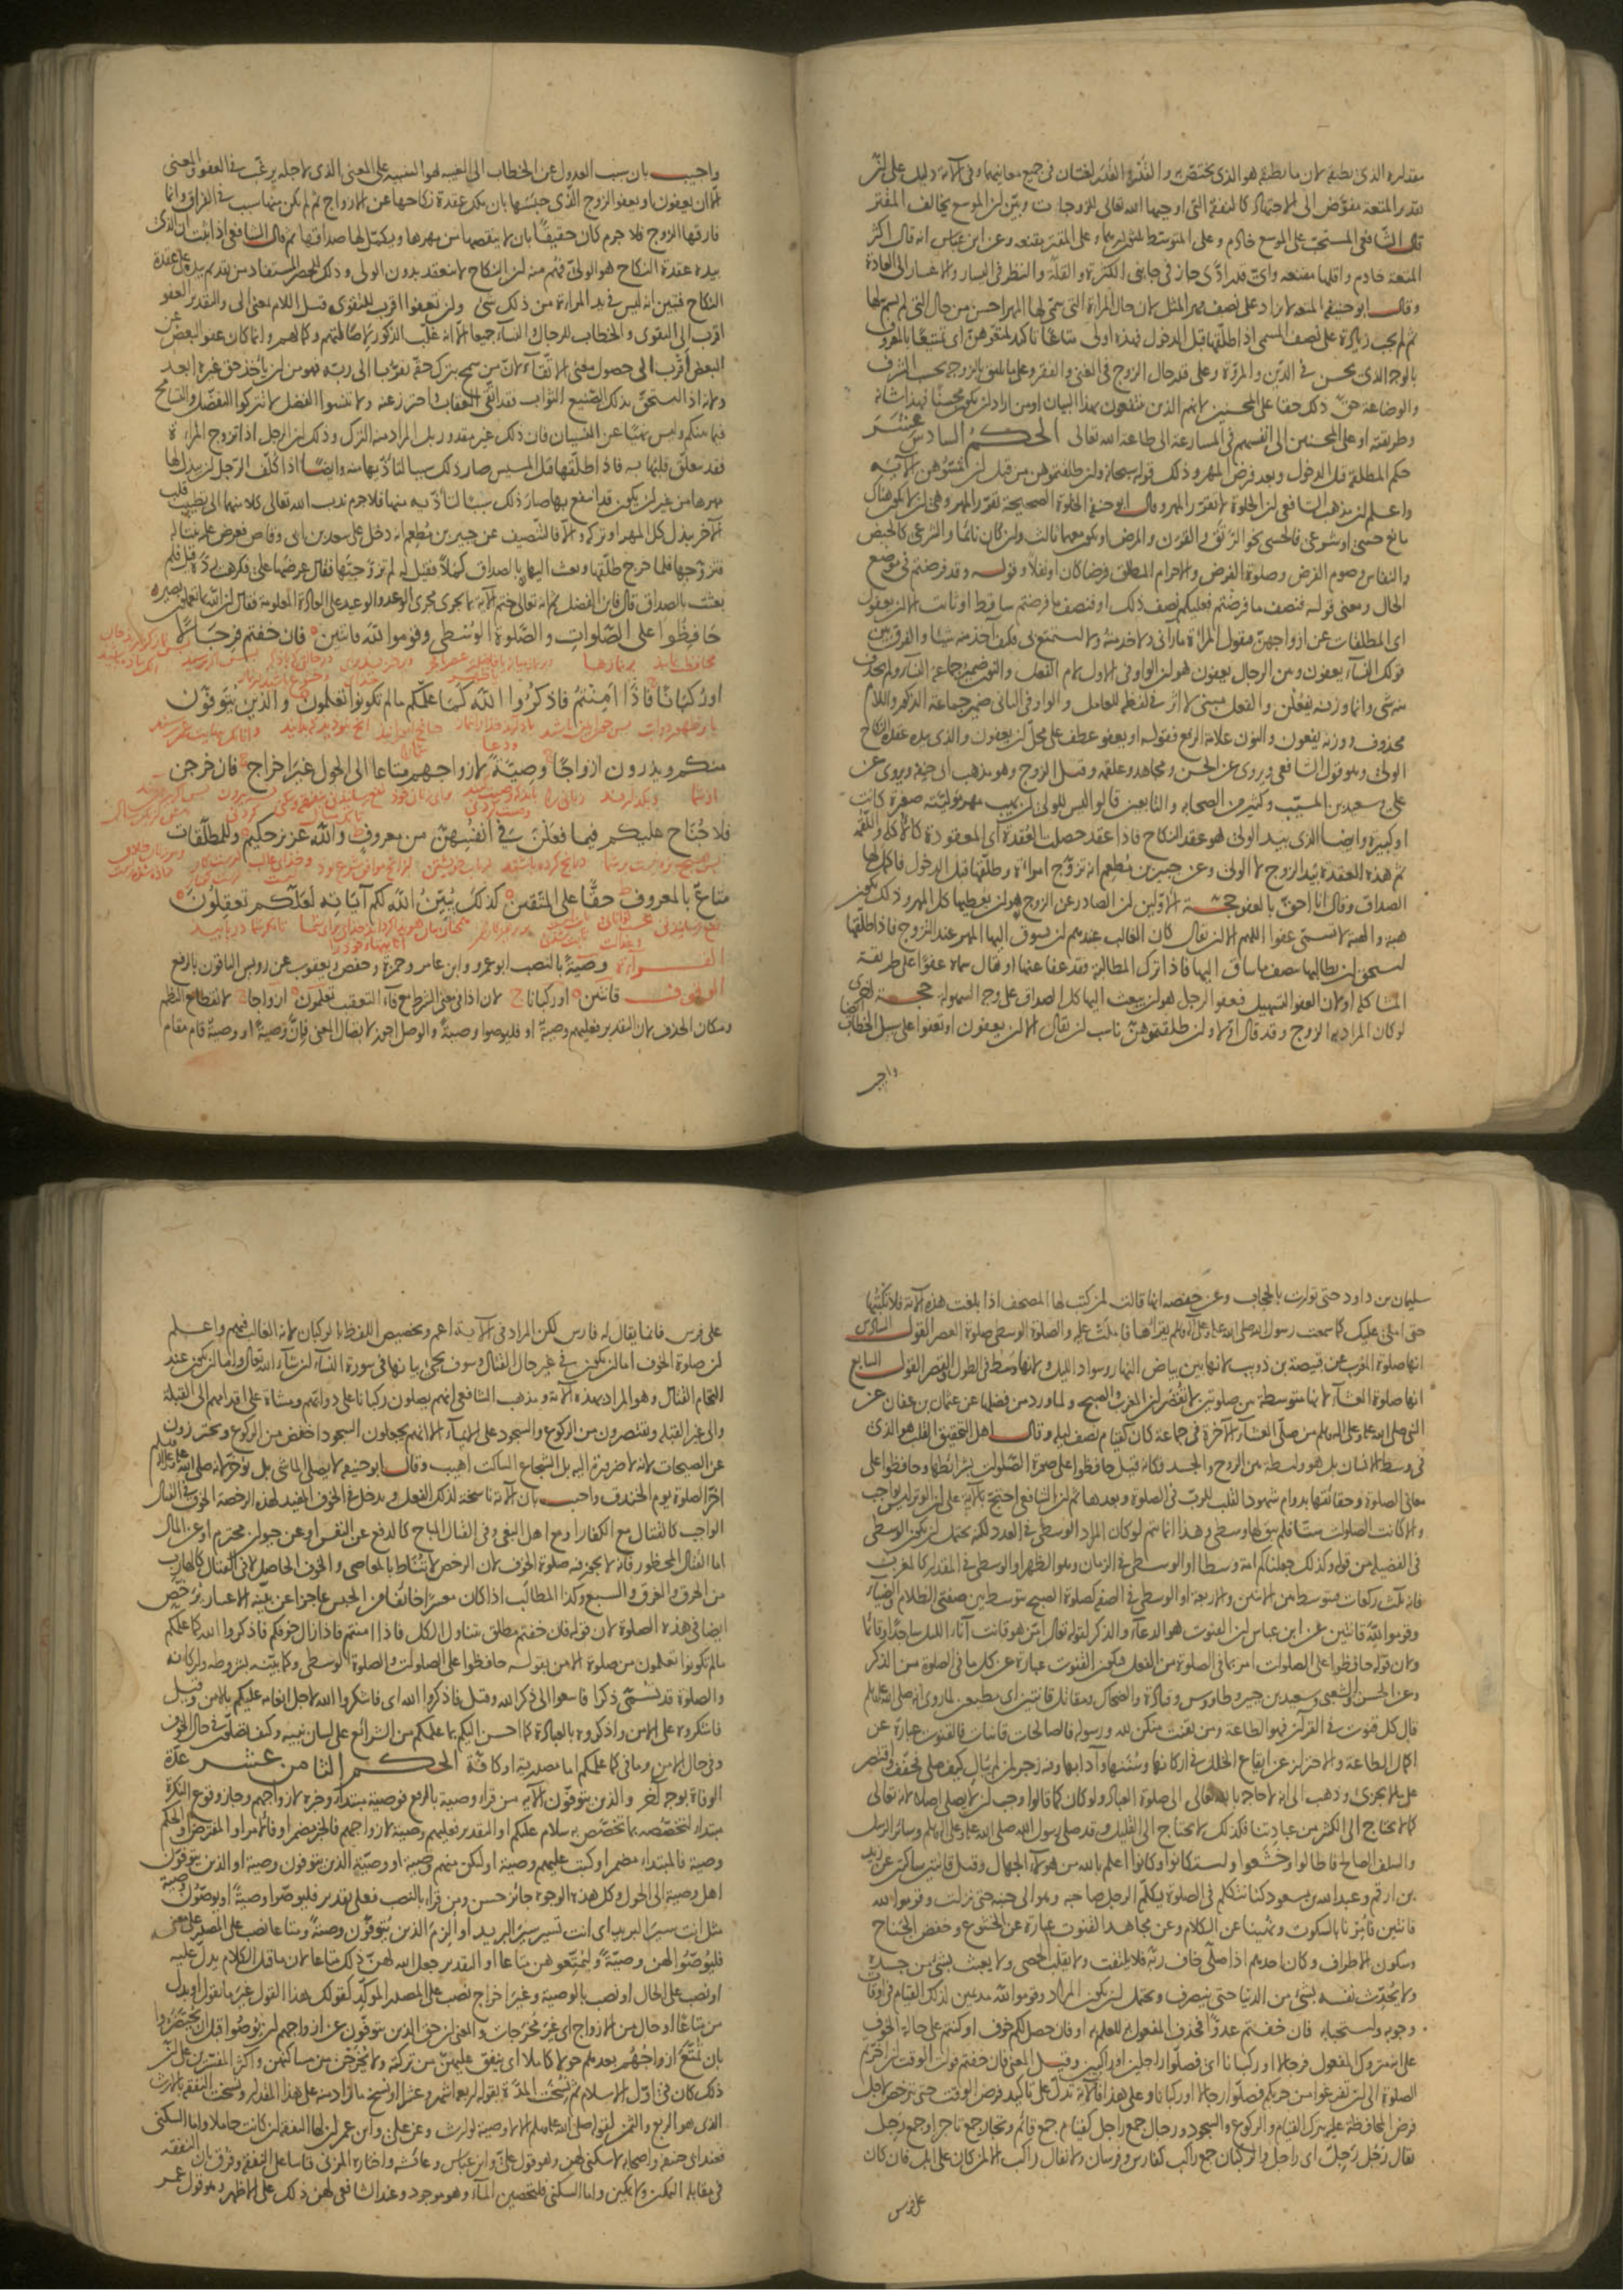 مقداره الذى يطيقه لان ما يطيقه هو الذى يختص به والقدْر والقدَر لغتان فى جميع معانيهما وفى الآية دليل على ان
تقدير المتعة مفوض الى الاجتهاد كالنفقة التى اوجبها الله تعالى للزوجات وبين ان الموسع يخالف المقتر
قال الشافعى المستحب على الموسع خادم وعلى المتوسط ثلثون درهما وعلى المقتر مقنعه وعن ابن عباس انه قال اكثر
المتعة خادم واقلها مقنعه واى قدر ادّى جاز فى جانبى الكثرة والقلة والنظر فى اليسار والاعسار الى العادة
وقال ابو حنيفه المتعه لا تزاد على نصف مهر المثل لان حال المراة التى سمى لها المهر احسن من حال التى لم يسم لها
ثم لم يجب زيادة على نصف المسمى اذا طلقها قبل الدخول فهذه اولى متاعًا تاكيد لمتعوهن اى تمتيعًا بالمعروف
بالوجه الذى يحسن فى الدين والمروة وعلى قدر حال الزوج فى الغنى والفقر وعلى ما يليق بالزوجة بحسب الشرف
والوضاعة حق ذلك حقا على المحسنين لانهم الذين ينتفعون بهذا البيان او من اراد ان يكون محسنًا فهذا شانه
وطريقته او على المحسنين الى انفسهم فى المسارعة الى طاعة الله تعالى الحكم السادس عشر
حكم المطلقة قبل الدخول وبعد فرض المهر وذلك قوله سبحانه وان طلقتموهن من قبل ان تمسوهن الآيه
واعلم ان مذهب الشافعى ان الخلوة لا تقرر المهر وقال ابو حنيفه الخلوة الصحيحة تقرر المهر وهى ان لا يكون هناك
مانع حسى او شرعى فالحسى نحو الرتق والقرن والمرض او يكون معهما ثالث وان كان نائما والشرعى كالحيض
والنفاس وصوم الفرض وصلوة الفرض والاحرام المطلق فرضا كان او نفلا وقوله وقد فرضتم فى موضع
الحال ومعنى قوله فنصف ما فرضتم فعليكم نصف ذلك او فنصف ما فرضتم ساقط او ثابت الا ان يعفون
اى المطلقات عن ازواجهن فتقول المراة ما رآنى ولا خدمته ولا استمتع بى فكيف آخذ منه شيئا والفرق بين
قولك النساء يعفون وبين الرجال يعفون هو ان الواو فى الاول لام الفعل والنون ضمير جماعة النساء ولم يحذف
منه شى وانما وزنه يفعلن والفعل مبنى لا اثر فى لفظه للعامل والواو فى الثانى ضمير جماعة الذكور واللام
محذوف ووزنه يفعون والنون علامة الرفع فقوله او يعفو عطف على محل ان يعفون والذى بيده عقدة النكاح
الولى وهو قول الشافعى ويروى عن الحسن ومجاهد وعلقمه وقيل الزوج وهو مذهب ابى حنيفه ويروى عن
على وسعيد بن المسيب وكثير من الصحابه والتابعين قالوا ليس للولى ان يهب مهر موليته صغيرة كانت
او كبيرة وايضا الذى بيد الولى هو عقد النكاح فاذا عقد حصلت العقدة اى المعقودة كالاكلة واللقمة
ثم هذه العقدة بيد الزوج لا الولى وعن جبير بن مطعم انه تزوج امراة وطلقها قبل الدخول فاكمل لها
الصداق وقال انا احق بالعفو حجة الاولين ان الصادر عن الزوج هو ان يعطيها كل المهر وذلك يكون
هبة والهبة لا تسمى عفوا اللهم الا ان يقال كان الغالب عندهم ان يسوق اليها المهر عند التزوج فاذا طلقها
استحق ان يطالبها بنصف ما ساق اليها فاذا ترك المطالبة فقد عفا عنها او يقال سماه عفوا على طريقة
المشاكله او لان العفو التسهيل فعفو الرجل هو ان يبعث اليها كل الصداق على وجه السهولة حجة اخرى
لو كان المراد به الزوج وقد قال اولا وان طلقتموهن ناسب ان يقال الا ان يعفون او تعفوا على سبيل الخطاب ايضا
واجيب
واجيب بان سبب العدول عن الخطاب الى الغيبه هو التنبيه على المعنى الذى لاجله يرغب فى العفو والمعنى
الا ان يعفون او يعفو الزوج الذى حبسها بان يملك عقدة نكاحها عن الازواج ثم لم يكن منها سبب فى الفراق وانما
فارقها الزوج فلا جرم كان حقيقًا بان لا ينقصها من مهرها ويكمل لها صداقها ثم قال الشافعى اذا ثبت ان الذى
بيده عقدة النكاح هو الولى فهم منه ان النكاح لا ينعقد بدون الولى وذلك للحصر المستفاد من تقديم بيده على عقدة
النكاح فتبين انه ليس فى يد المراءة من ذلك شى وان تعفوا اقرب للتقوى قيل اللام بمعنى الى والتقدير العفو
اقرب الى التقوى والخطاب للرجال والنساء جميعا الا انه غلب الذكور لاصالتهم وكمالهم وانما كان عفو البعض عن
البعض اقرب الى حصول معنى الاتقاء لان من سمح بترك حقه تقربا الى ربه فهو من ان ياخذ حق غيره ابعد
ولانه اذا استحق بذلك الصنيع الثواب فقد اتقى العقاب واحترز عنه ولا تنسوا الفضل لا تتركوا التفضل والتسامح
فيما بينكم وليس نهيًا عن النسيان فان ذلك غير مقدور بل المراد منه الترك وذلك ان الرجل اذا تزوج المراة
فقد تعلق قلبها به فاذا طلقها قبل المسيس صار ذلك سببا لتأذيها منه وايضا اذا كلف الرجل ان يبذل لها
مهرها من غير ان يكون قد انتفع بها صار ذلك سببًا لتأذيه منها فلا جرم ندب الله تعالى كلا منهما الى تطييب قلب
الآخر ببذل كل المهر او تركه والا فالتنصيف عن جبير بن مطعم انه دخل على سعد بن ابى وقاص فعرض عليه بنتا له
فتزوجها فلما خرج طلقها وبعث اليها بالصداق كملا فقيل له لم تزوجتها فقال عرضها على فكرهت رده قيل فلم
بعثت بالصداق قال فاين الفضل ثم انه تعالى ختم الآية بما يجرى مجرى الوعد والوعيد على العادة المعلومة فقال ان الله بما تعملون بصير
حَافِظُوا على الصَّلَواتِ والصَّلوةِ الوُسْطى وقُومُوا لِلّه قانتين فان خفتم فرجالًا
اورُكبَانًا فَاذَا امِنْتُمْ فاذكرُوا اللّهَ كما علّمكم مالم تكونوا تعلمون والذين يُتَوفّوْنَ
منكم ويذرون ازواجًا وصيّةً لازواجهم متاعا الى الحول غيرَ اخراج فان خرجن
فلا جُنَاح عليكم فيما فعَلْنَ فى انفسِهِنّ من معروفٍ واللّهُ عزيزٌ حكيم وللمطلّقات
متاعٌ بالمعروف حقًّا على المتّقين كذلك يُبَيِّنُ اللّه لكم آياتِه لعلّكم تعقلون
القراءة وصيةً بالنصب ابو عمرو وابن عامر وحمزة وحفص ويعقوب عن رويس الباقون بالرفع
الوقوف قانتين او ركبانا لان اذا فى معنى الشرط مع فاء التعقيب تعلمون ازواجا لانقطاع النظم
ومكان الحذف لان التقدير فعليهم وصية او فليوصوا وصيةً والوصل اجوز لاتصال المعنى فان وصيةً او وصيةٌ قام مقام
سليمان بن داود حتى توارت بالحجاب وعن حفصه انها قالت لمن كتب لها المصحف اذا بلغت هذه الآية فلا تكتبها
حتى املى عليك كما سمعت رسول الله صلى الله عليه وعلى آله وسلم يقرأها فاملت عليه والصلوة الوسطى صلوة العصر القول السادس
انها صلوة المغرب عن قبيصة بن ذويب لانها بين بياض النهار وسواد الليل ولانها وسط فى الطول والقصر القول السابع
انها صلوة العشاء لانها متوسطة بين صلوتين لا تقصران المغرب والصبح ولما ورد من فضلها عن عثمان بن عفان عن
النبى صلى الله عليه وعلى اله وسلم من صلى العشاء الآخرة فى جماعة كان كقيام نصف ليله وقال اهل التحقيق القلب هو الذى
فى وسط الانسان بل هو واسطة بين الروح والجسد فكانه قيل حافظوا على صورة الصلوات بشرائطها وحافظوا على
معانى الصلوة وحقائقها بدوام شهود القلب للرب فى الصلوة وبعدها ثم ان الشافعى احتج بالآية على ان الوتر ليس بواجب
والا كانت الصلوات ستا فلم يبق لها وسطى وهذا انما يتم لو كان المراد الوسطى فى العدد لكنه يحتمل ان يكون الوسطى
فى الفضيلة من قوله وكذلك جعلناكم امة وسطا او الوسطى فى الزمان وهو الظهر او الوسطى فى المقدار كالمغرب
فانه ثلث ركعات فيتوسط بين الاثنين والاربعة او الوسطى فى الصفه كصلوة الصبح يتوسط بين صفتى الظلام والضياء
وقوموا لله قانتين عن ابن عباس ان القنوت هو الدعاء والذكر لقوله تعالى امن هو قانت آناء الليل ساجدا وقائما
ولان قوله حافظوا على الصلوات امر بما فى الصلوة من الفعل فيكون القنوت عبارة عن كل ما فى الصلوة من الذكر
وعن الحسن والشعبى وسعيد بن جبير وطاووس وقتادة والضحاك ومقاتل قانتين اى مطيعين لما روى انه صلى الله عليه وسلم
قال كل قنوت فى القرآن فهو الطاعة ومن يقنت منكن لله ورسوله فالصالحات قانتات فالقنوت عبارة عن
اكمال الطاعة والاحتراز عن ايقاع الخلل فى اركانها وسننها وآدابها وفيه زجر لمن لم يبال كيف صلى فخفف واقتصر
على ما يجزى وذهب الى انه لا حاجة بالله تعالى الى صلوة العباد ولو كان كما قالوا وجب ان لا يصلى اصلا لانه تعالى
كما لا يحتاج الى الكثير من عبادتنا فكذلك لا يحتاج الى القليل وقد صلى رسول الله صلى الله عليه وعلى اله وسلم وسائر الرسل
والسلف الصالح فاطالوا وخشعوا واستكانوا وكانوا اعلم بالله من هؤلاء الجهال وقيل قانتين ساكتين عن زيد
بن ارقم وعبد الله بن مسعود كنا نتكلم فى الصلوة يكلم الرجل صاحبه وهو الى جنبه حتى نزلت وقوموا لله
قانتين فامرنا بالسكوت ونهينا عن الكلام وعن مجاهد القنوت عبارة عن الخشوع وخفض الجناح
وسكون الاطراف وكان احدهم اذا صلى خاف ربه فلا يلتفت ولا يقلب الحصى ولا يعبث بشئ من جسده
ولا يحدث نفسه بشئ من الدنيا حتى ينصرف ويحتمل ان يكون المراد وقوموا لله مديمين لذلك القيام فى اوقات
وجوبه واستحبابه فان خفتم عدوًا فحذف المفعول للعلم به او فان حصل لكم خوف او كنتم على حالة الخوف
على انه متروك المفعول فرجالا او ركبانا اى فصلوا راجلين او راكبين وقيل المعنى فان خفتم فوات الوقت ان اخرتم
الصلوة الى ان تفرغوا من حربكم فصلوا رجالا او ركبانا وعلى هذا فالآية تدل على تاكيد فرض الوقت حتى يترخص لاجل
فرض المحافظة عليه بترك القيام والركوع والسجود ورجال جمع راجل كقيام جمع قائم وتجار جمع تاجر او جمع رجل
يقال رَجُل رَجِل اى راجل والركبان جمع راكب كفارس وفرسان ولا يقال راكب الا لمن كان على ابل فان كان
على فرس
على فرس فانما يقال له فارس لكن المراد فى الآية اعم وتخصيص اللفظ بالركبان لانه الغالب فيهم واعلم
ان صلوة الخوف اما ان يكون فى غير حال القتال وسوف يجئ بيانها فى سورة النساء ان شاء الله تعالى واما ان يكون عند
التحام القتال وهو المراد بهذه الآية ومذهب الشافعى انهم يصلون ركبانا على دوابهم ومشاة على اقدامهم الى القبلة
والى غير القبلة ويقتصرون من الركوع والسجود على الايماء الا انهم يجعلون السجود اخفض من الركوع ويحترزون
عن الصيحات لانه لا ضرورة اليه بل الشجاع الساكت اهيب وقال ابو حنيفه لا يصلى الماشى بل يؤخر لانه صلى الله عليه وسلم
اخر الصلوة يوم الخندق واجيب بان الآية ناسخة لذلك الفعل ويدخل فى الخوف المفيد لهذه الرخصة الخوف فى القتال
الواجب كالقتال مع الكفار او مع اهل البغى وفى القتال المباح كالدفع عن النفس او عن حيوان محترم او عن المال
اما القتال المحظور فانه لا يجوز فيه صلوة الخوف لان الرخص لا تناط بالمعاصى والخوف الحاصل لا فى القتال كالهارب
من الحرق والغرق والسبع وكذا المطالب اذا كان معسرا خائفا من الحبس عاجزا عن بينة الاعسار يترخص
ايضا فى هذه الصلوة لان قوله فان خفتم مطلق يتناول الكل فاذا امنتم فاذا زال خوفكم فاذكروا الله كما علمكم
مالم تكونوا تعلمون من صلوة الامن بقوله حافظوا على الصلوات والصلوة الوسطى وكما بينه بشروطه واركانه
والصلوة قد تسمى ذكرا فاسعوا الى ذكر الله وقيل فاذكروا الله اى فاشكروا الله لاجل انعامه عليكم بالامن وقيل
فاشكروه على الامن واذكروه بالعبادة كما احسن اليكم بما علمكم من الشرائع على لسان نبيه وكيف تصلون فى حال الخوف
وفى حال الامن وما فى كما علمكم اما مصدرية او كافة الحكم الثامن عشر عدة
الوفاة بوجه آخر والذين يتوفون الآيه من قراء وصية بالرفع فوصية مبتداء وخبره لازواجهم وجاز وقوع النكرة
مبتداء لتخصصه بما تخصص به سلام عليكم او التقدير فعليهم وصية لازواجهم فالخبر مضمر او فالامر او المفترض او الحكم
وصية فالمبتداء مضمر او كتب عليهم وصية او ليكن منهم وصية او وصية الذين يتوفون وصية او الذين يتوفون
اهل وصية الى الحول وكل هذه الوجوه جائز حسن ومن قراء بالنصب فعلى تقدير فليوصوا وصيةً او يوصون وصية
مثل انت سيرَ البريد اى انت تسير سير البريد او الزم الذين يتوفون وصيةً ومتاعا نصب على المصدر على معنى
فليوصوا لهن وصيةً وليمتعوهن متاعا او التقدير جعل الله لهن ذلك متاعا لان ما قبل الكلام يدل عليه
او نصب على الحال او نصب بالوصية وغير اخراج نصب على المصدر المؤكد كقولك هذا القول غير ما تقول او بدل
من متاعًا او حال من الازواج اى غيرَ مخرجات والمعنى ان حق الذين يتوفون عن ازواجهم ان يوصوا قبل ان يحتضروا
بان تمتع ازواجهم بعدهم حولا كاملا اى ينفق عليهن من تركته ولا يخرجن من مساكنهن واكثر المفسرين على ان
ذلك كان فى اول الاسلام ثم نسخت المدة بقوله اربعة اشهر وعشرا او نسخ ما زاد منه على هذا المقدار ونسخت النفقه بالارث
الذى هو الربع والثمن لقوله صلى الله عليه وسلم الا لا وصية لوارث وعن على وابن عمر ان لها النفقه ان كانت حاملا واما السكنى
فعند ابى حنيفه واصحابه لا سكنى لهن وهو قول على وابن عباس وعائشه واختاره المزنى قياسا على النفقه وفرق بان النفقه
فى مقابلة التمكين ولا تمكين واما السكنى فلتحصين الماء وهو موجود وعند الشافعى لهن ذلك على الاظهر وهو قول عمر